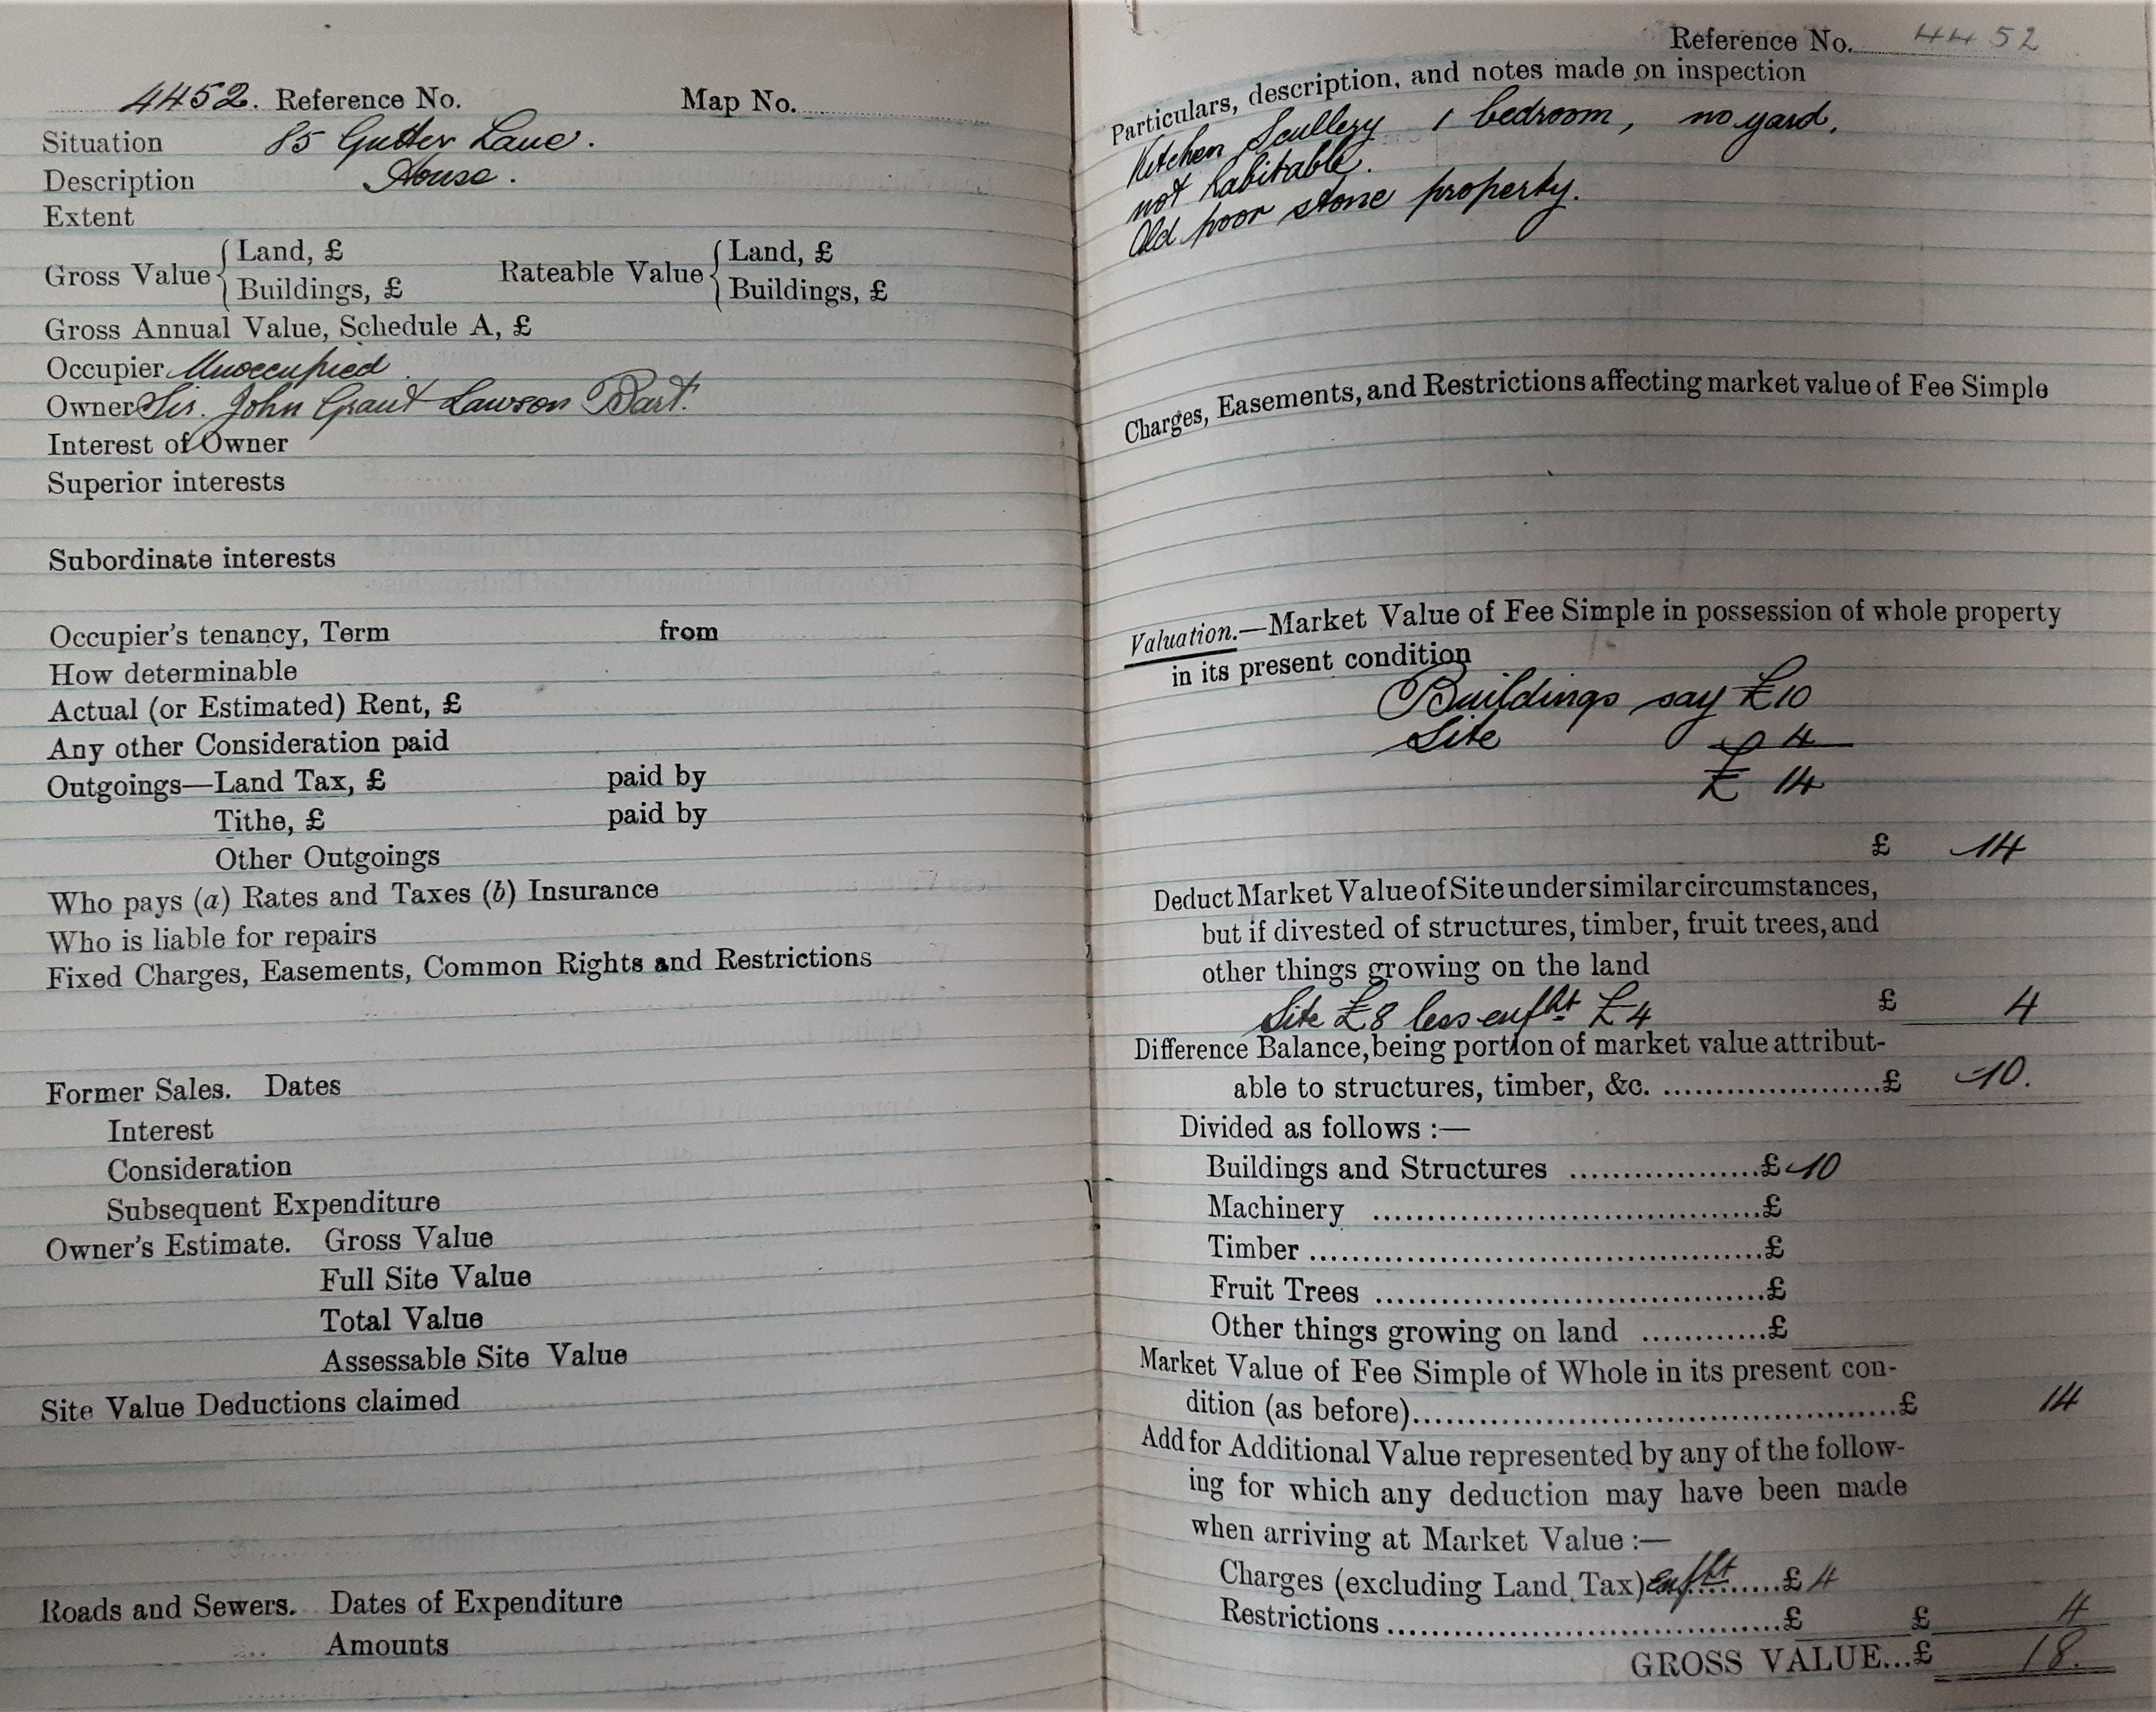 4452. Reference No. Map No.
Situation 85 Gutter Lane.
Description House.
Extent
Gross Value { Land, £ Rateable Value { Land, £
Buildings, £ Buildings, £
Gross Annual Value, Schedule A, £
Occupier Unoccupied
Owner Sir. John Grant Lawson Bart.
Interest of Owner
Superior interests
Subordinate interests
Occupier's tenancy, Term from
How determinable
Actual (or Estimated) Rent, £
Any other Consideration paid
Outgoings—Land Tax, £ paid by
Tithe, £ paid by
Other Outgoings
Who pays (a) Rates and Taxes (b) Insurance
Who is liable for repairs
Fixed Charges, Easements, Common Rights and Restrictions
Former Sales. Dates
Interest
Consideration
Subsequent Expenditure
Owner's Estimate. Gross Value
Full Site Value
Total Value
Assessable Site Value
Site Value Deductions claimed
Roads and Sewers. Dates of Expenditure
Amounts
Reference No. 4452
Particulars, description, and notes made on inspection
Kitchen Scullery 1 bedroom, no yard.
not habitable.
Old poor stone property.
Charges, Easements, and Restrictions affecting market value of Fee Simple
Valuation.—Market Value of Fee Simple in possession of whole property
in its present condition
Buildings say £10
Site 4
£ 14
£ 14
Deduct Market Value of Site under similar circumstances,
but if divested of structures, timber, fruit trees, and
other things growing on the land
Site £8 less enfht £4 £ 4
Difference Balance, being portion of market value attribut-
able to structures, timber, &c. ....................£ 10.
Divided as follows :—
Buildings and Structures ..................£ 10
Machinery ....................................£
Timber ..........................................£
Fruit Trees ....................................£
Other things growing on land ............£
Market Value of Fee Simple of Whole in its present con-
dition (as before)..............................................£ 14
Add for Additional Value represented by any of the follow-
ing for which any deduction may have been made
when arriving at Market Value :—
Charges (excluding Land Tax) enfht ........£ 4
Restrictions ....................................£ £ 4
GROSS VALUE...£ 18.